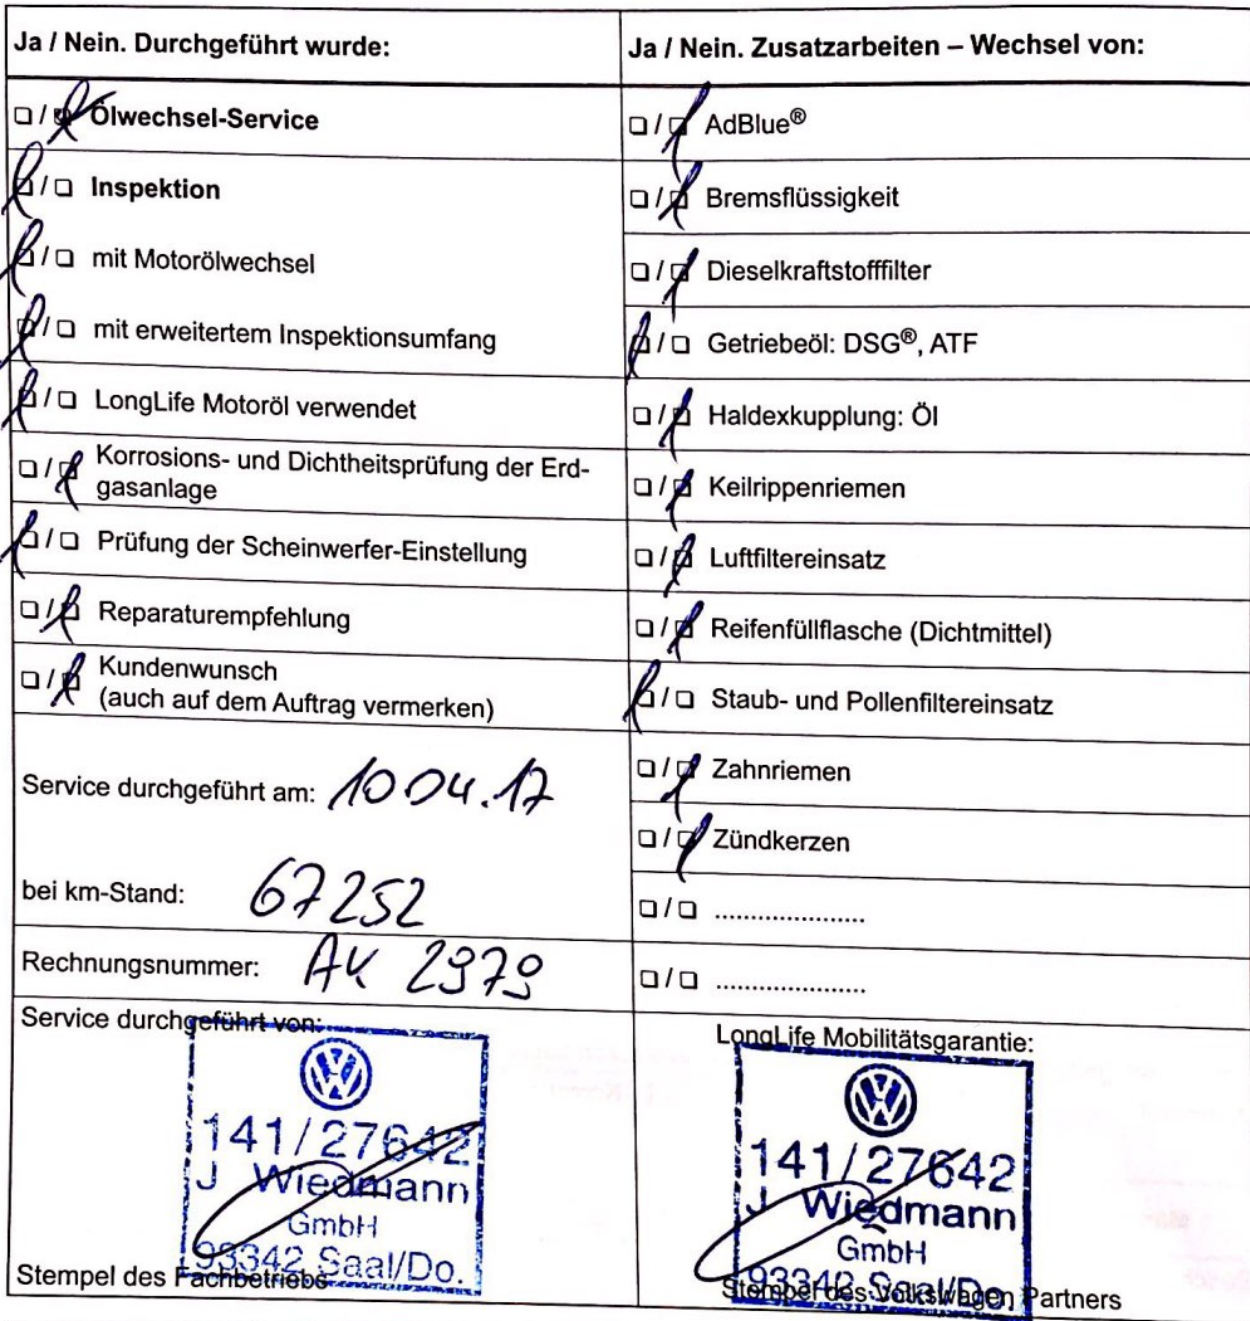 Ja / Nein. Durchgeführt wurde:
☐ / ☒ Ölwechsel-Service
☒ / ☐ Inspektion
☒ / ☐ mit Motorölwechsel
☒ / ☐ mit erweitertem Inspektionsumfang
☒ / ☐ LongLife Motoröl verwendet
☐ / ☒ Korrosions- und Dichtheitsprüfung der Erd-
gasanlage
☒ / ☐ Prüfung der Scheinwerfer-Einstellung
☐ / ☒ Reparaturempfehlung
☐ / ☒ Kundenwunsch
(auch auf dem Auftrag vermerken)
Service durchgeführt am: 10 04.17
bei km-Stand: 67252
Rechnungsnummer: AK 2979
Service durchgeführt von:
141/27642
J Wiedmann
GmbH
93342 Saal/Do.
Stempel des Fachbetriebs
Ja / Nein. Zusatzarbeiten – Wechsel von:
☐ / ☒ AdBlue®
☐ / ☒ Bremsflüssigkeit
☐ / ☒ Dieselkraftstofffilter
☒ / ☐ Getriebeöl: DSG®, ATF
☐ / ☒ Haldexkupplung: Öl
☐ / ☒ Keilrippenriemen
☐ / ☒ Luftfiltereinsatz
☐ / ☒ Reifenfüllflasche (Dichtmittel)
☒ / ☐ Staub- und Pollenfiltereinsatz
☐ / ☒ Zahnriemen
☐ / ☒ Zündkerzen
☐ / ☐ .....................
☐ / ☐ .....................
LongLife Mobilitätsgarantie:
141/27642
J. Wiedmann
GmbH
93342 Saal/Do.
Stempel des Volkswagen Partners